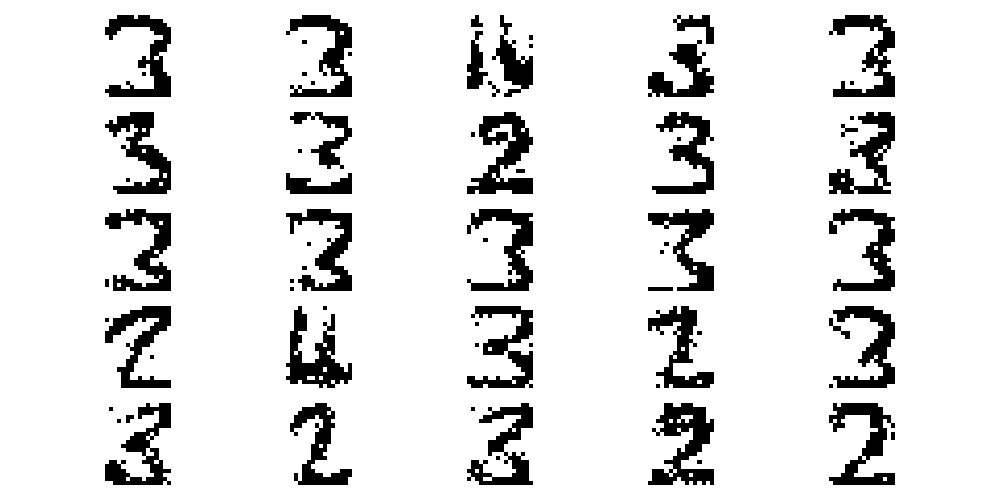 3 3 3 3
3 3 2 3 3
3 3 3 3 3
2 3 2 3
3 2 3 2 2